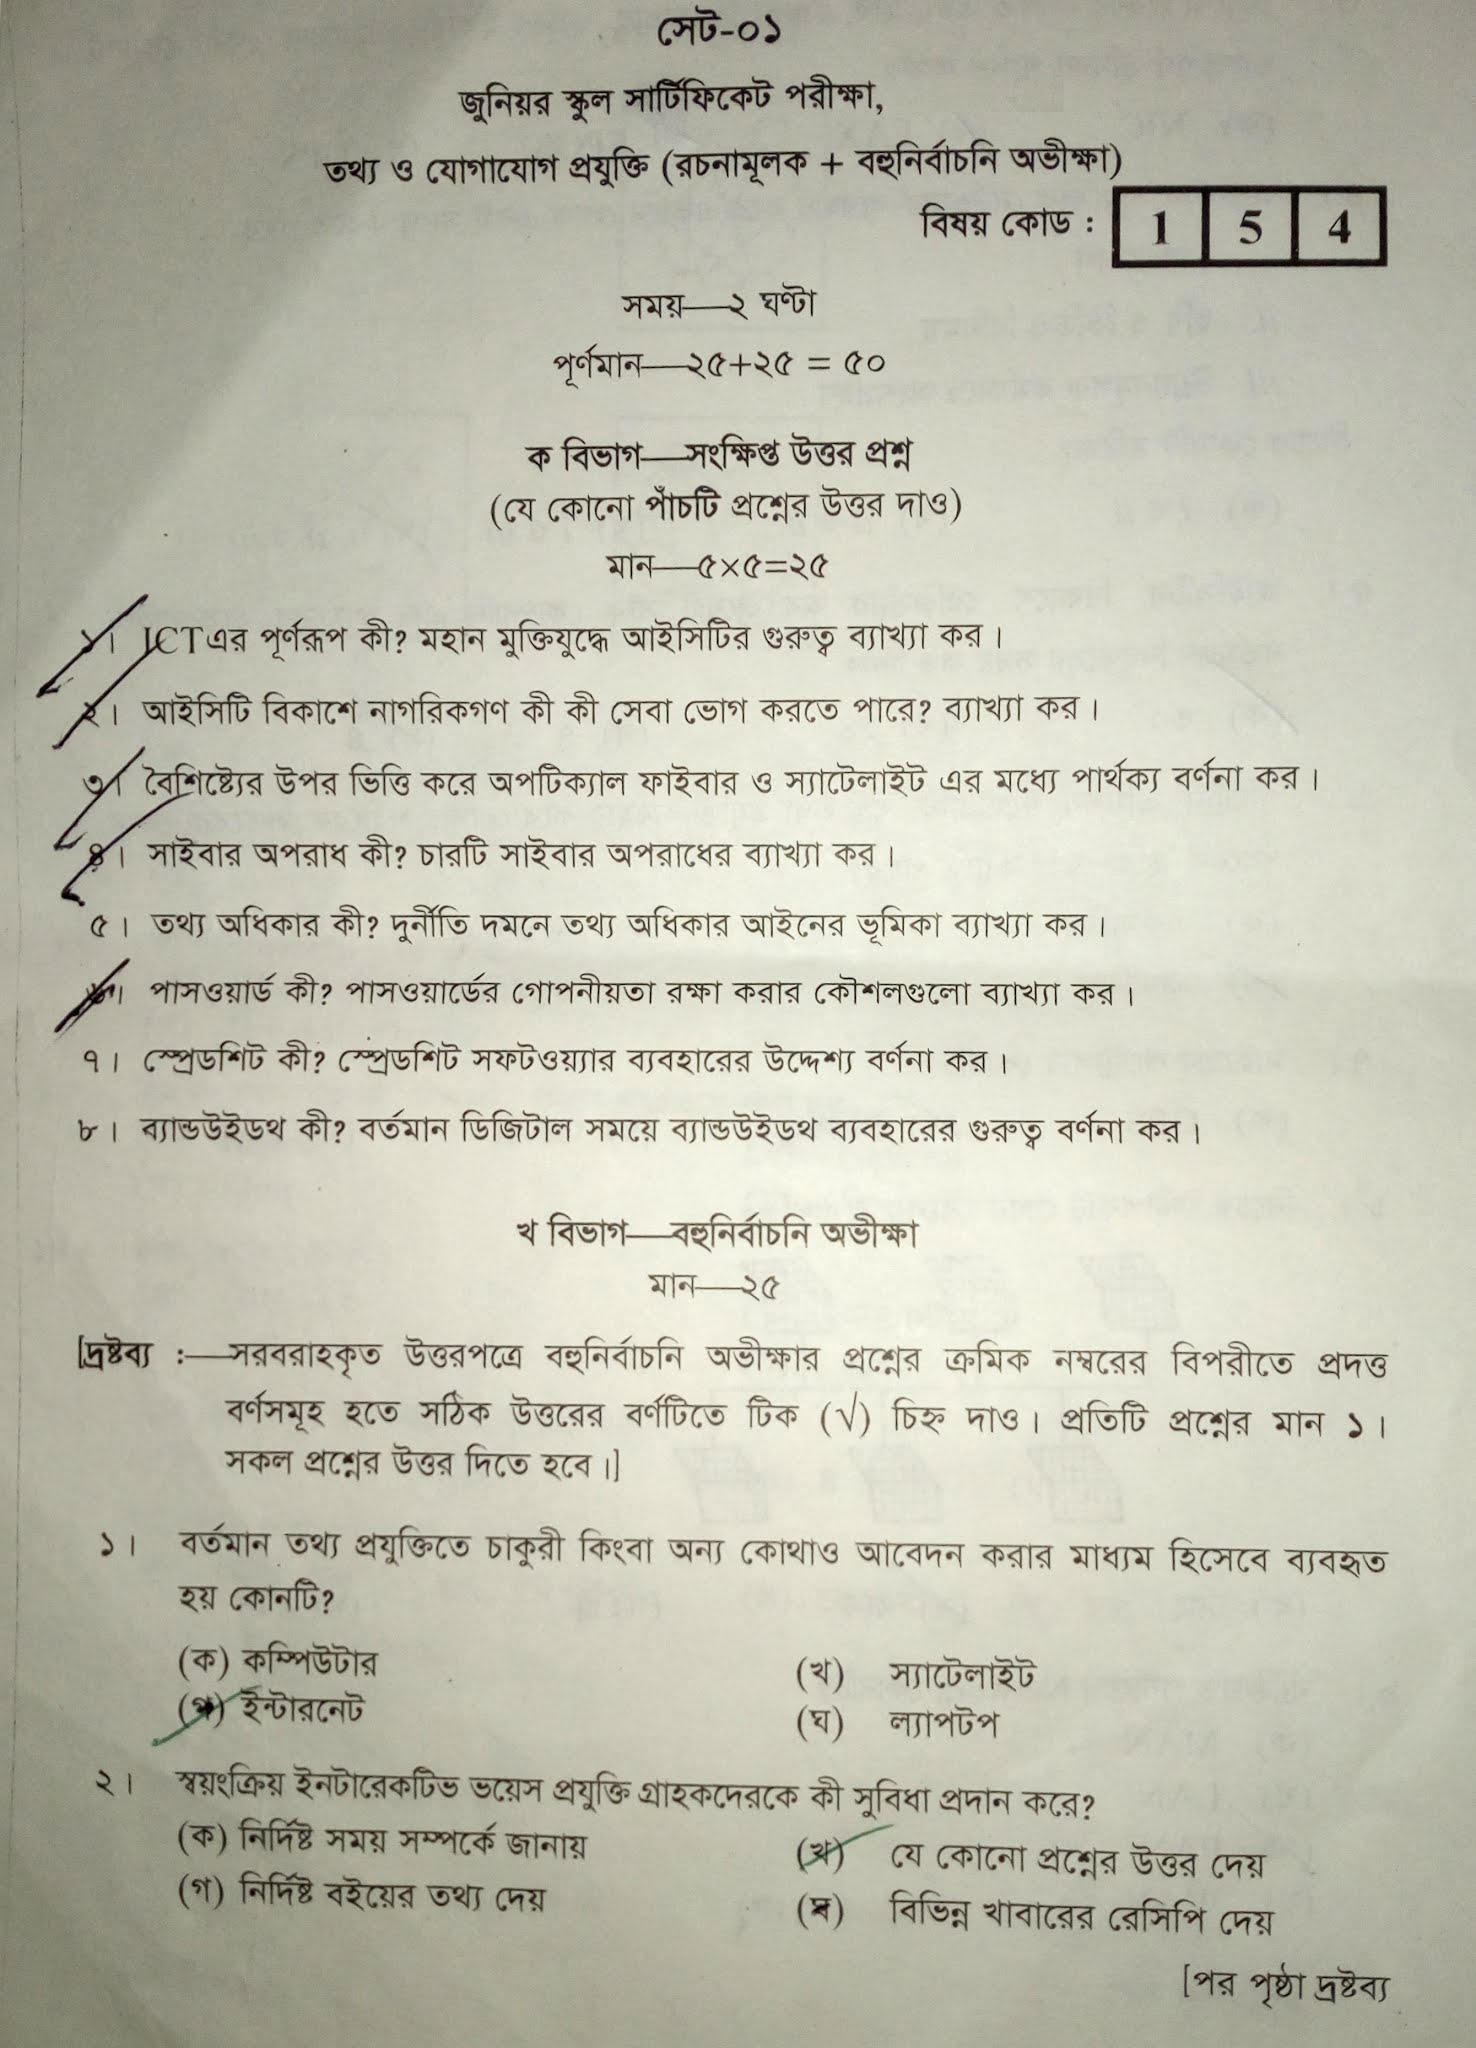 সেট-০১
জুনিয়র স্কুল সার্টিফিকেট পরীক্ষা,
তথ্য ও যোগাযোগ প্রযুক্তি (রচনামূলক + বহুনির্বাচনি অভীক্ষা)
বিষয় কোড : 1 5 4
সময়—২ ঘণ্টা
পূর্ণমান—২৫+২৫ = ৫০
ক বিভাগ—সংক্ষিপ্ত উত্তর প্রশ্ন
(যে কোনো পাঁচটি প্রশ্নের উত্তর দাও)
মান—৫×৫=২৫
১। ICTএর পূর্ণরূপ কী? মহান মুক্তিযুদ্ধে আইসিটির গুরুত্ব ব্যাখ্যা কর।
২। আইসিটি বিকাশে নাগরিকগণ কী কী সেবা ভোগ করতে পারে? ব্যাখ্যা কর।
৩। বৈশিষ্ট্যের উপর ভিত্তি করে অপটিক্যাল ফাইবার ও স্যাটেলাইট এর মধ্যে পার্থক্য বর্ণনা কর।
৪। সাইবার অপরাধ কী? চারটি সাইবার অপরাধের ব্যাখ্যা কর।
৫। তথ্য অধিকার কী? দুর্নীতি দমনে তথ্য অধিকার আইনের ভূমিকা ব্যাখ্যা কর।
৬। পাসওয়ার্ড কী? পাসওয়ার্ডের গোপনীয়তা রক্ষা করার কৌশলগুলো ব্যাখ্যা কর।
৭। স্প্রেডশিট কী? স্প্রেডশিট সফটওয়্যার ব্যবহারের উদ্দেশ্য বর্ণনা কর।
৮। ব্যান্ডউইডথ কী? বর্তমান ডিজিটাল সময়ে ব্যান্ডউইডথ ব্যবহারের গুরুত্ব বর্ণনা কর।
খ বিভাগ—বহুনির্বাচনি অভীক্ষা
মান—২৫
[দ্রষ্টব্য :—সরবরাহকৃত উত্তরপত্রে বহুনির্বাচনি অভীক্ষার প্রশ্নের ক্রমিক নম্বরের বিপরীতে প্রদত্ত
বর্ণসমূহ হতে সঠিক উত্তরের বর্ণটিতে টিক (√) চিহ্ন দাও। প্রতিটি প্রশ্নের মান ১।
সকল প্রশ্নের উত্তর দিতে হবে।]
১। বর্তমান তথ্য প্রযুক্তিতে চাকুরী কিংবা অন্য কোথাও আবেদন করার মাধ্যম হিসেবে ব্যবহৃত
হয় কোনটি?
(ক) কম্পিউটার (খ) স্যাটেলাইট
(গ) ইন্টারনেট (ঘ) ল্যাপটপ
২। স্বয়ংক্রিয় ইনটারেকটিভ ভয়েস প্রযুক্তি গ্রাহকদেরকে কী সুবিধা প্রদান করে?
(ক) নির্দিষ্ট সময় সম্পর্কে জানায় (খ) যে কোনো প্রশ্নের উত্তর দেয়
(গ) নির্দিষ্ট বইয়ের তথ্য দেয় (ঘ) বিভিন্ন খাবারের রেসিপি দেয়
[পর পৃষ্ঠা দ্রষ্টব্য